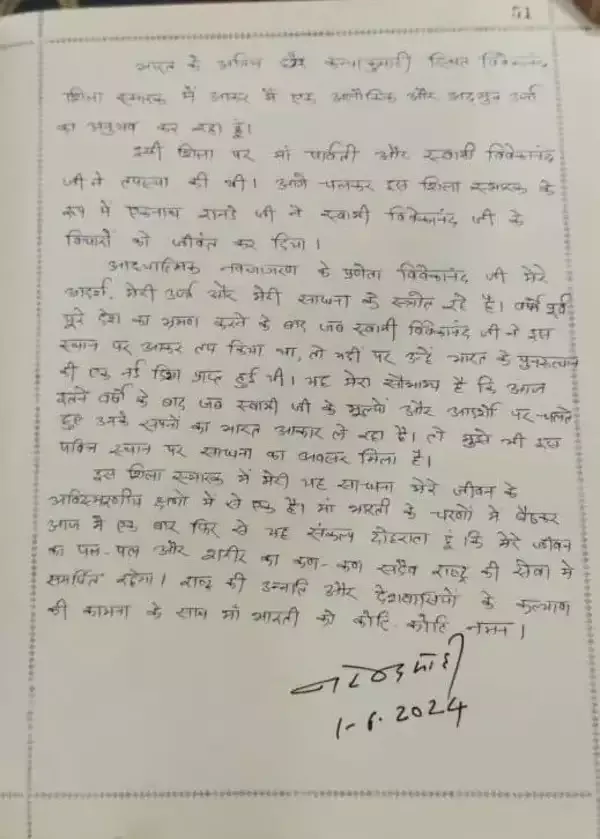 51
भारत के अंतिम छोर कन्याकुमारी स्थित विवेकानंद
शिला स्मारक में आकर मैं एक अलौकिक और अदभुत उर्जा
का अनुभव कर रहा हूं।
इसी शिला पर मां पार्वती और स्वामी विवेकानंद
जी ने तपस्या की थी। आगे चलकर इस शिला स्मारक के
रूप में एकनाथ रानडे जी ने स्वामी विवेकानंद जी के
विचारों को जीवंत कर दिया।
आध्यात्मिक नवजागरण के प्रणेता विवेकानंद जी मेरे
आदर्श, मेरी उर्जा और मेरी साधना के स्त्रोत रहे है। वर्षों पूर्व
पूरे देश का भ्रमण करने के बाद जब स्वामी विवेकानंद जी ने इस
स्थान पर आकर तप किया था, तो यहीं पर उन्हें भारत के पुनरूत्थान
की एक नई दिशा प्राप्त हुई थी। यह मेरा सौभाग्य है कि आज
इतने वर्षों के बाद जब स्वामी जी के मूल्यों और आदर्शों पर चलते
हुए उनके सपनों का भारत आकार ले रहा है। तो मुझे भी इस
पवित्र स्थान पर साधना का अवसर मिला है।
इस शिला स्मारक में मेरी यह साधना मेरे जीवन के
अविस्मरणीय क्षणों में से एक है। मां भारती के चरणों में बैठकर
आज मैं एक बार फिर से यह संकल्प दोहराता हूं कि मेरे जीवन
का पल-पल और शरीर का कण-कण सदैव राष्ट्र की सेवा में
समर्पित रहेगा। राष्ट्र की उन्नति और देशवासियों के कल्याण
की कामना के साथ मां भारती को कोटि-कोटि नमन।
नरेन्द्र मोदी
1-6.2024